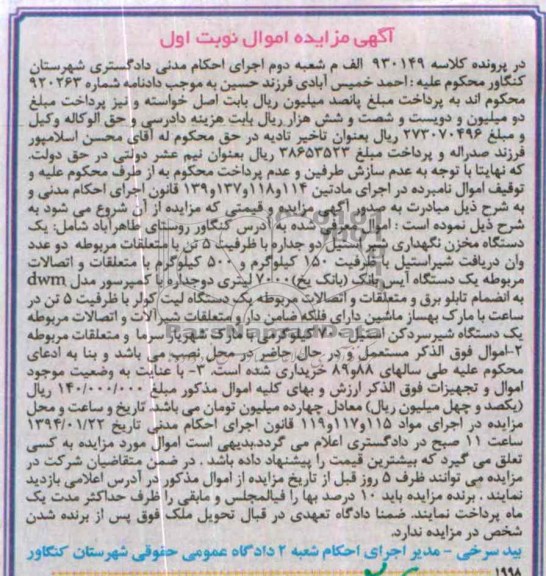 آگهی مزایده اموال نوبت اول
در پرونده کلاسه ۹۳۰۱۴۹ الف م شعبه دوم اجرای احکام مدنی دادگستری شهرستان
کنگاور محکوم علیه : احمد خمیس آبادی فرزند حسین به موجب دادنامه شماره ۹۲۰۲۶۳
محکوم اند به پرداخت مبلغ پانصد میلیون ریال بابت اصل خواسته و نیز پرداخت مبلغ
دو میلیون و دویست و شصت و شش هزار ریال بابت هزینه دادرسی و حق الوکاله وکیل
و مبلغ ۲۷۳۰۷۰۴۹۶ ریال بعنوان تاخیر تادیه در حق محکوم له آقای محسن اسلامپور
فرزند صدراله و پرداخت مبلغ ۳۸۶۵۳۵۲۳ ریال بعنوان نیم عشر دولتی در حق دولت.
که نهایتا با توجه به عدم سازش طرفین و عدم پرداخت محکوم به از طرف محکوم علیه و
توقیف اموال نامبرده در اجرای مادتین ۱۱۴و۱۱۸و۱۳۷و۱۳۹ قانون اجرای احکام مدنی و
به شرح ذیل مبادرت به صدور آگهی مزایده و قیمتی که مزایده از آن شروع می شود به
شرح ذیل نموده است : اموال معرفی شده به آدرس کنگاور روستای طاهرآباد شامل: یک
دستگاه مخزن نگهداری شیر استیل دو جداره با ظرفیت ۵ تن با متعلقات مربوطه دو عدد
وان دریافت شیراستیل با ظرفیت ۱۵۰ کیلوگرم و ۵۰۰ کیلوگرم با متعلقات و اتصالات
مربوطه یک دستگاه آیس بانک (بانک یخ) ۷۰۰۰ لیتری دوجداره با کمپرسور مدل dwm
به انضمام تابلو برق و متعلقات و اتصالات مربوطه یک دستگاه لیت کولر با ظرفیت ۵ تن در
ساعت با مارک بهساز ماشین دارای فلکه ضامن دار و متعلقات شیرآلات و اتصالات مربوطه
یک دستگاه شیرسردکن استیل کیلوگرمی با مارک شهریار سرما و متعلقات مربوطه
۲-اموال فوق الذکر مستعمل و در حال حاضر در محل نصب می باشد و بنا به ادعای
محکوم علیه طی سالهای ۸۸و۸۹ خریداری شده است. ۳- با عنایت به وضعیت موجود
اموال و تجهیزات فوق الذکر ارزش و بهای کلیه اموال مذکور مبلغ ۱۴۰/۰۰۰/۰۰۰ ریال
(یکصد و چهل میلیون ریال) معادل چهارده میلیون تومان می باشد. تاریخ و ساعت و محل
مزایده در اجرای مواد ۱۱۵و۱۱۷و۱۱۹ قانون اجرای احکام مدنی تاریخ ۱۳۹۴/۰۱/۲۲
ساعت ۱۱ صبح در دادگستری اعلام می گردد.بدیهی است اموال مورد مزایده به کسی
تعلق می گیرد که بیشترین قیمت را پیشنهاد داده باشد . در ضمن متقاضیان شرکت در
مزایده می توانند ظرف ۵ روز قبل از تاریخ مزایده از اموال مذکور در آدرس اعلامی بازدید
نمایند . برنده مزایده باید ۱۰ درصد بها را فیالمجلس و مابقی را ظرف حداکثر مدت یک
ماه پرداخت نمایند. ضمنا دادگاه تعهدی در قبال تحویل ملک فوق پس از برنده شدن
شخص در مزایده ندارد.
بید سرخی - مدیر اجرای احکام شعبه ۲ دادگاه عمومی حقوقی شهرستان کنگاور
۱۹۹۸